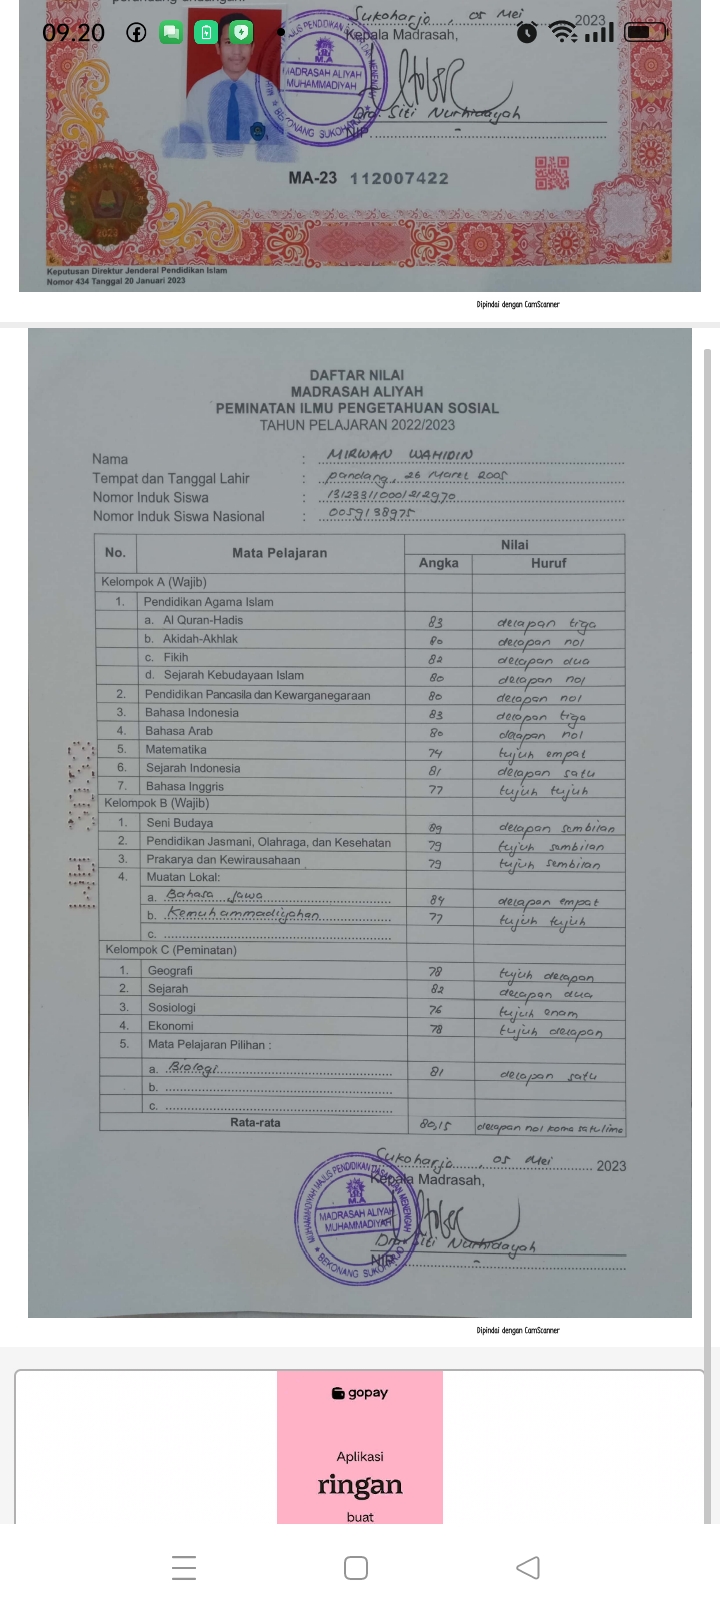 09.20
Sukoharjo, 05 Mei 2023
Kepala Madrasah,
MAJLIS PENDIDIKAN DASAR DAN MENENGAH
MADRASAH ALIYAH
MUHAMMADIYAH
BEKONANG SUKOHARJO
Dra. Siti Nurhidayah
NIP. -
MA-23 112007422
2023
Keputusan Direktur Jenderal Pendidikan Islam
Nomor 434 Tanggal 20 Januari 2023
Dipindai dengan CamScanner
DAFTAR NILAI
MADRASAH ALIYAH
PEMINATAN ILMU PENGETAHUAN SOSIAL
TAHUN PELAJARAN 2022/2023
Nama : MIRWAN WAHIDIN
Tempat dan Tanggal Lahir : pandang, 26 Maret 2005
Nomor Induk Siswa : 131233110001212970
Nomor Induk Siswa Nasional : 0059138975
No. Mata Pelajaran Nilai
Angka Huruf
Kelompok A (Wajib)
1. Pendidikan Agama Islam
a. Al Quran-Hadis 83 delapan tiga
b. Akidah-Akhlak 80 delapan nol
c. Fikih 82 delapan dua
d. Sejarah Kebudayaan Islam 80 delapan nol
2. Pendidikan Pancasila dan Kewarganegaraan 80 delapan nol
3. Bahasa Indonesia 83 delapan tiga
4. Bahasa Arab 80 delapan nol
5. Matematika 74 tujuh empat
6. Sejarah Indonesia 81 delapan satu
7. Bahasa Inggris 77 tujuh tujuh
Kelompok B (Wajib)
1. Seni Budaya 89 delapan sembilan
2. Pendidikan Jasmani, Olahraga, dan Kesehatan 79 tujuh sembilan
3. Prakarya dan Kewirausahaan 79 tujuh sembilan
4. Muatan Lokal:
a. Bahasa Jawa 84 delapan empat
b. Kemuhammadiyahan 77 tujuh tujuh
c.
Kelompok C (Peminatan)
1. Geografi 78 tujuh delapan
2. Sejarah 82 delapan dua
3. Sosiologi 76 tujuh enam
4. Ekonomi 78 tujuh delapan
5. Mata Pelajaran Pilihan :
a. Biologi 81 delapan satu
b.
c.
Rata-rata 80,15 delapan nol koma satu lima
Sukoharjo, 05 Mei 2023
Kepala Madrasah,
MUHAMMADIYAH MAJLIS PENDIDIKAN DASAR DAN MENENGAH
M.A
MADRASAH ALIYAH
MUHAMMADIYAH
BEKONANG SUKOHARJO
Dra. Siti Nurhidayah
NIP. -
Dipindai dengan CamScanner
gopay
Aplikasi
ringan
buat